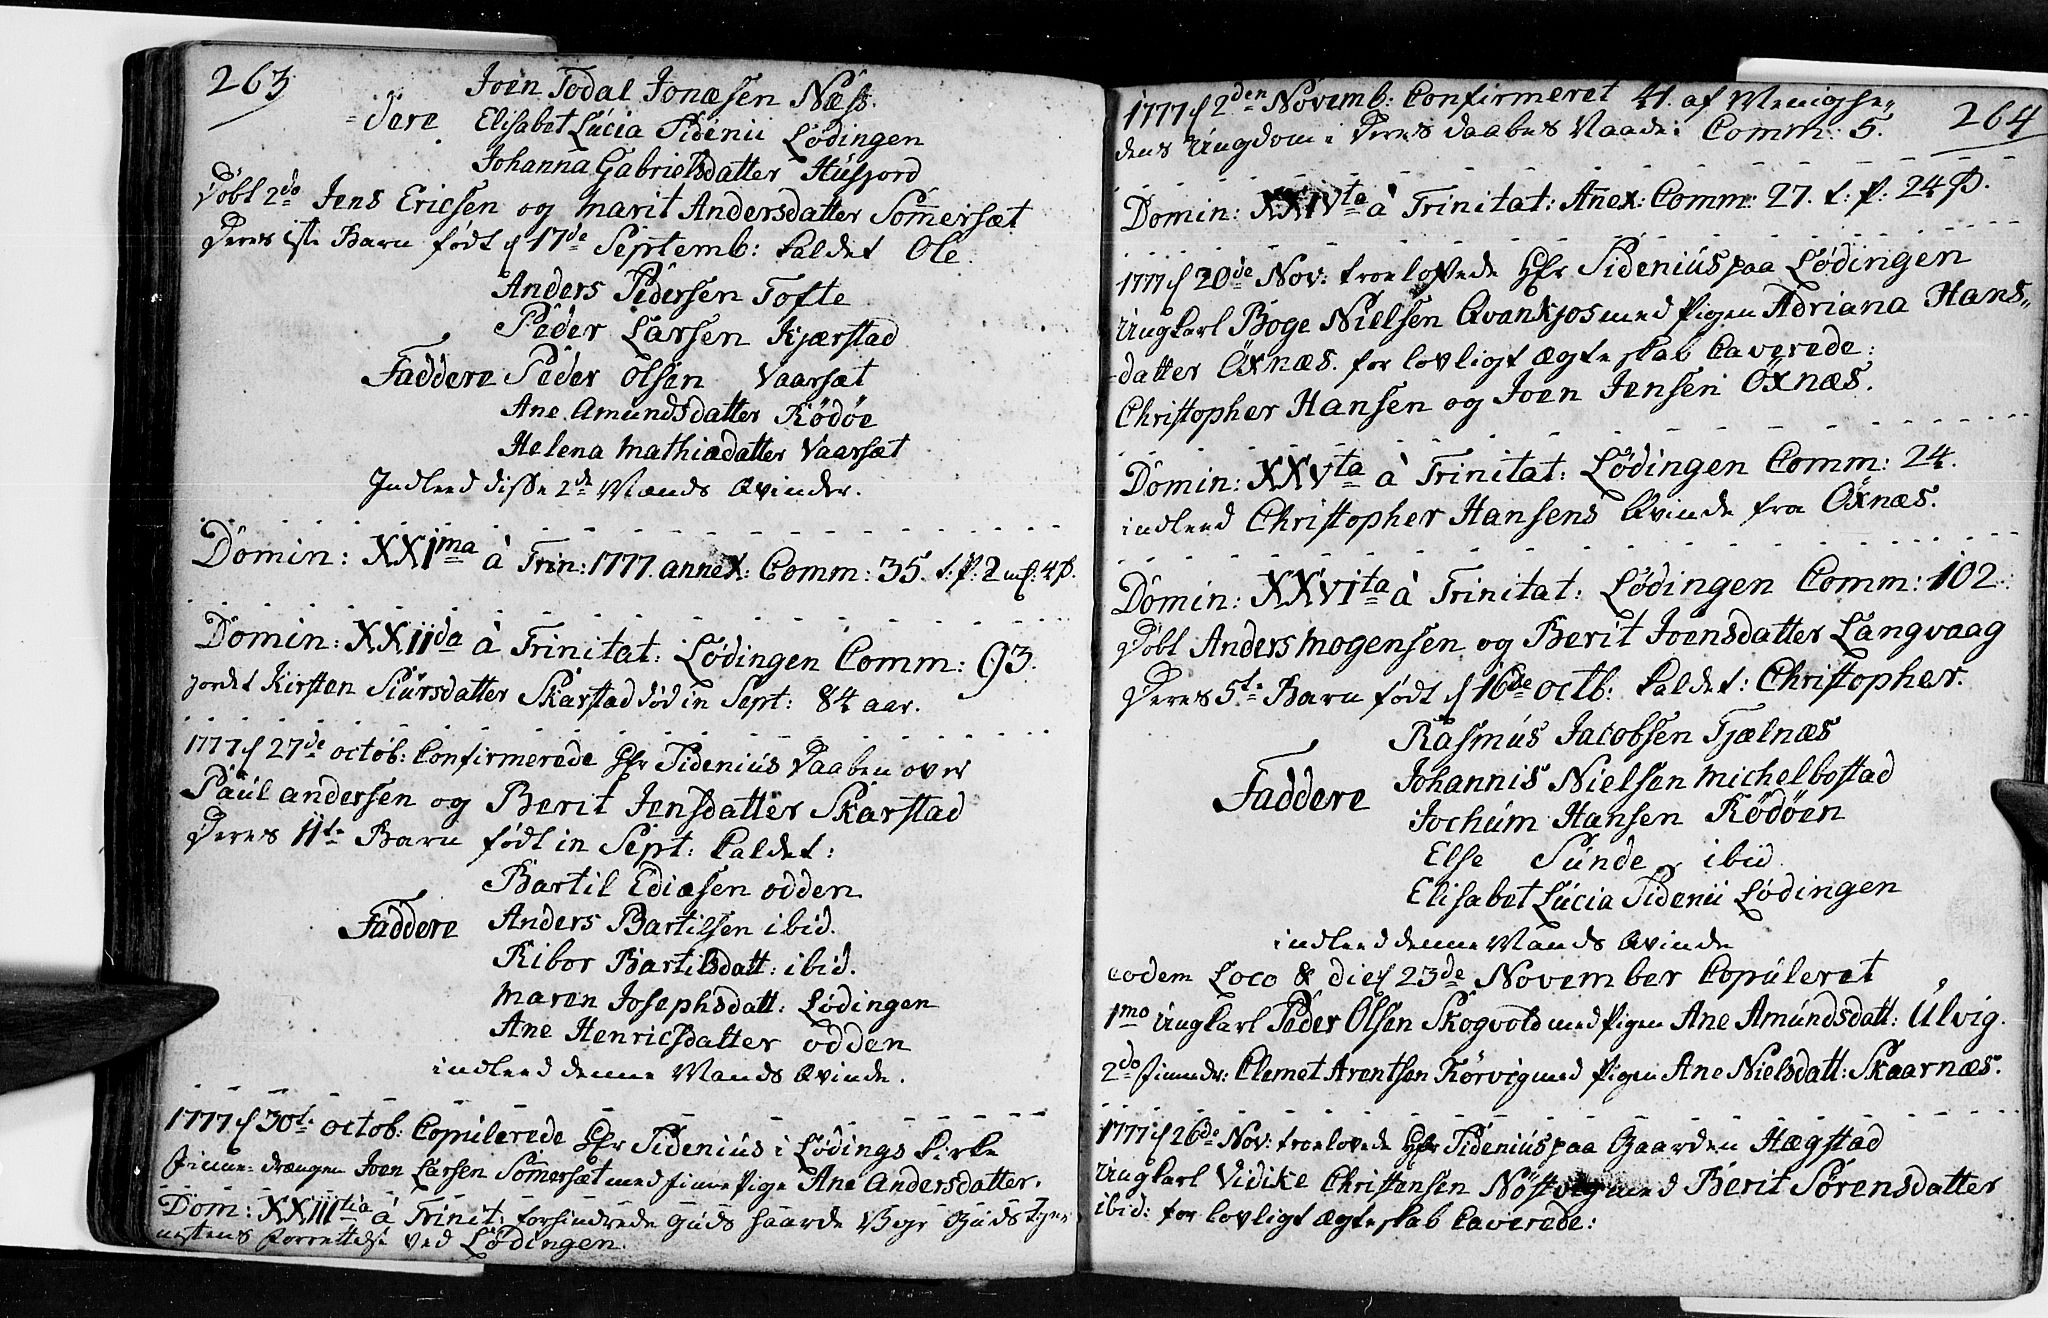 263
Joen Todal Jonæsen Næss.
=dere Elisabet Lucia Sidenii Lødingen
Johanna Gabrielsdatter Husjord
Døbt 2do Jens Ericsen og Marit Andersdatter Somersæt
Deres 1ste Barn født d 17de Septemb: kaldet Ole.
Anders Pedersen Tofte
Peder Larsen Kjærstad
Faddere Peder Olsen Vaarsæt
Ane Amundsdatter Rödöe
Helena Mathiædatter Vaarsæt
Indleed disse 2de Mænds Qvinder.
Domin: XXIma à Trin: 1777. annex: Comm: 35. t: p: 2 mk: 4 s.
Domin: XXIIda à Trinitat: Lødingen Comm: 93.
jordet Kirsten Siursdatter Skarstad død in Sept: 84 aar.
1777 d 27de octob: Confirmerede Hr Sidenius Daaben over
Paul andersen og Berit Jensdatter Skarstad
Deres 11te Barn født in Sept: kaldet:
Bartil Ediæsen odden
Faddere Anders Bartilsen ibid.
Ribor Bartilsdatt: ibid.
Maren Josephsdatt: Lødingen
Ane Henricsdatter odden
indleed denne Mands Qvinde.
1777 d 30te octob: Copulerede Hr Sidenius i Lødings Kirke
finne-drængen Joen Larsen Somersæt med finne Pige Ane Andersdatter.
Dom: XXIIItia à Trinit: forhindrede Guds haarde Vejr Guds Tjen-
nestens forrettelse ved Lødingen.
264
1777 d 2den Novemb: Confirmeret 41. af Menighe-
dens Ungdom i Deres Daabes Naade: Comm: 5.
Domin: XXIVta à Trinitat: Anex: Comm: 27. t: p: 24 s.
1777 d 20de Nov: troelovede Hr Sidenius paa Lødingen
Ungkarl Boge Nielsen Qvankjos med Pigen Adriana Hans-
=datter Öxnæs. for lovligt Ægteskab Caverede:
Christopher Hansen og Joen Jensen Öxnæs.
Domin: XXVta à Trinitat: Lødingen Comm: 24.
indleed Christopher Hansens Qvinde fra Öxnæs.
Domin: XXVIta à Trinitat: Lødingen Comm: 102.
Døbt Anders Mogensen og Berit Joensdatter Langvaag
Deres 5te Barn født d 16de octb: kaldet: Christopher.
Rasmus Jacobsen Fjælnæs
Johannis Nielsen Michelbostad
Faddere
Jochum Hansen Rödöen
Else Sunde ibid.
Elisabet Lucia Sidenii Lødingen
indleed denne Mands Qvinde
eodem Loco & die d 23de November Copuleret
1mo Ungkarl Peder Olsen Skogvold med Pigen Ane Amundsdatt: Ulvig.
2do finnedr: Clemet Arentsen Kørvig med Pigen Ane Nielsdatt: Skaarnæs.
1777 d 26de Nov: troelovede Hr Sidenius paa Gaarden Hægstad
Ungkarl Vidike Christensen Nöstvig med Berit Sørensdatter
ibid: for lovligt ægteskab Caverede: